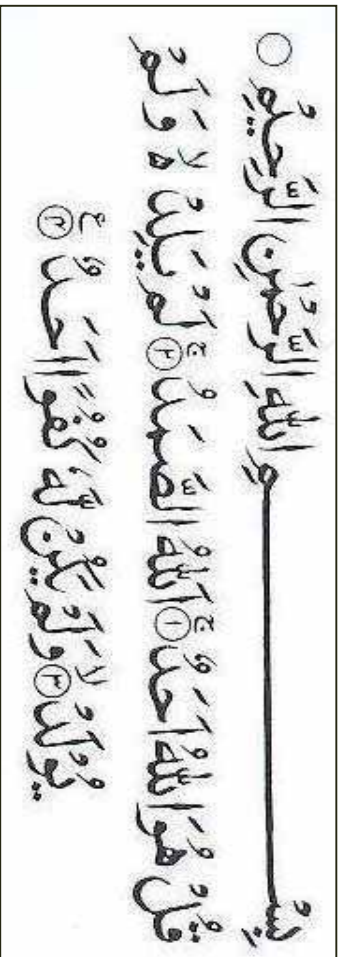 بِسْمِ اللهِ الرَّحْمٰنِ الرَّحِيْمِ ○
قُلْ هُوَ اللهُ اَحَدٌ ۚ﴿۱﴾ اَللهُ الصَّمَدُ ۚ﴿۲﴾ لَمْ يَلِدْ ۙ۬ وَلَمْ
يُوْلَدْ ۙ﴿۳﴾ وَلَمْ يَكُنْ لَّهٗ كُفُوًا اَحَدٌ ﴿۴﴾ ع